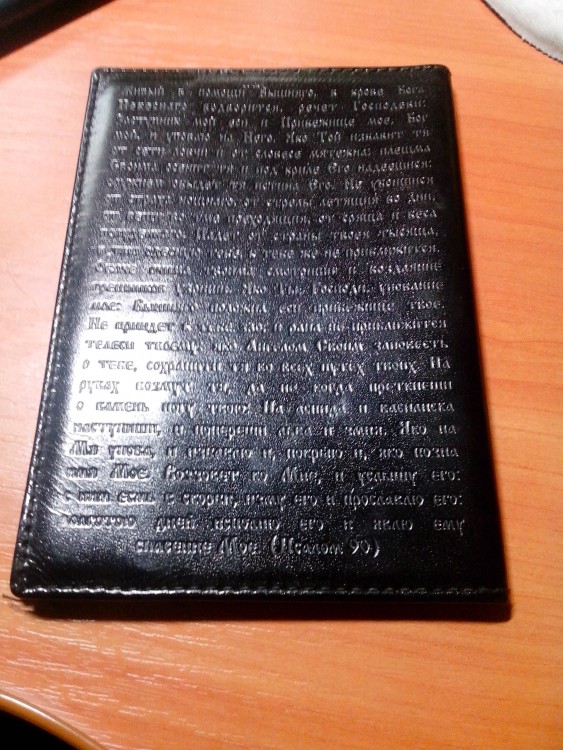 Живый в помощи Вышняго, в крове Бога
Небеснаго водворится, речет Господеви:
Заступник мой еси и Прибежище мое, Бог
мой, и уповаю на Него. Яко Той избавит тя
от сети ловчи и от словесе мятежна: плещма
Своима осенит тя, и под криле Его надеешися:
оружием обыдет тя истина Его. Не убоишися
от страха нощнаго, от стрелы летящия во дни,
от вещи во тме преходящия, от сряща и беса
полуденнаго. Падет от страны твоея тысяща,
одесную тебе, к тебе же не приближится.
Обаче очима твоима смотриши и воздаяние
грешников узриши. Яко Ты, Господи, упование
мое: Вышняго положил еси прибежище твое.
Не приидет к тебе зло и рана не приближится
телеси твоему, яко Ангелом Своим заповесть
о тебе, сохранити тя во всех путех твоих. На
руках возмут тя, да не когда преткнеши
о камень ногу твою: На аспида и василиска
наступиши, и попереши льва и змия. Яко на
Мя упова, и избавлю и, покрыю и, яко позна
имя Мое. Воззовет ко Мне, и услышу его:
с ним есмь в скорби, изму его и прославлю его:
долготою дней исполню его и явлю ему
спасение Мое. (Псалом 90)